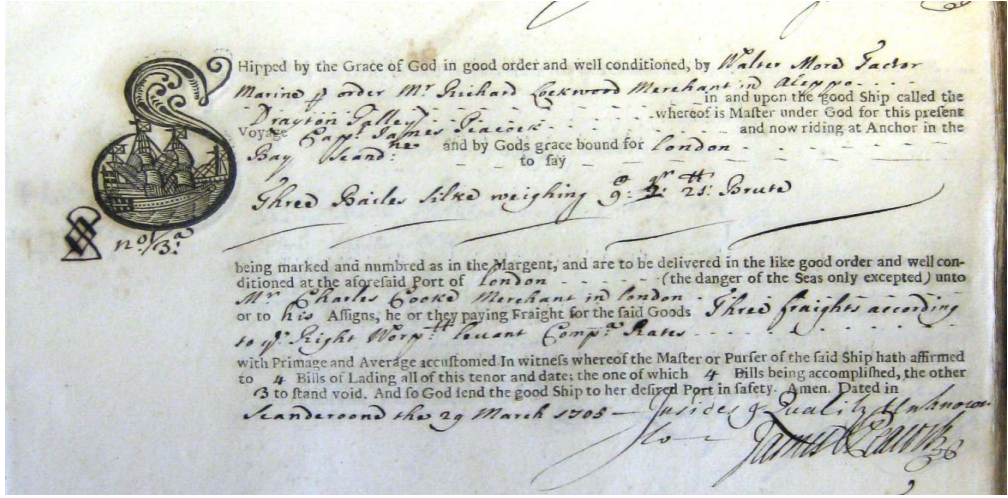 SHipped by the Grace of God in good order and well conditioned, by Walter More Factor
Marine p order Mr Richard Lockwood Merchant in Aleppo in and upon the good Ship called the
Drayton Galley whereof is Master under God for this present
Voyage Capt James Peacock and now riding at Anchor in the
Bay Scandne and by Gods grace bound for London
to say
Three Bailes Silke weighing 9: 21: Brute
no/3a
being marked and numbred as in the Margent, and are to be delivered in the like good order and well con-
ditioned at the aforesaid Port of London (the danger of the Seas only excepted) unto
Mr Charles Cooke Merchant in London
or to his Assigns, he or they paying Fraight for the said Goods Three fraights according
to ye Right Worpll levant Compa Rates
with Primage and Average accustomed. In witness whereof the Master or Purser of the said Ship hath affirmed
to 4 Bills of Lading all of this tenor and date; the one of which 4 Bills being accomplished, the other
3 to stand void. And so God send the good Ship to her desired Port in safety. Amen. Dated in
Scanderoond the 29 March 1705 – Insides & Quality Unknowne
James Peacock